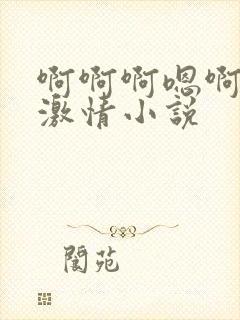 啊啊啊嗯啊
激情小説
閬苑